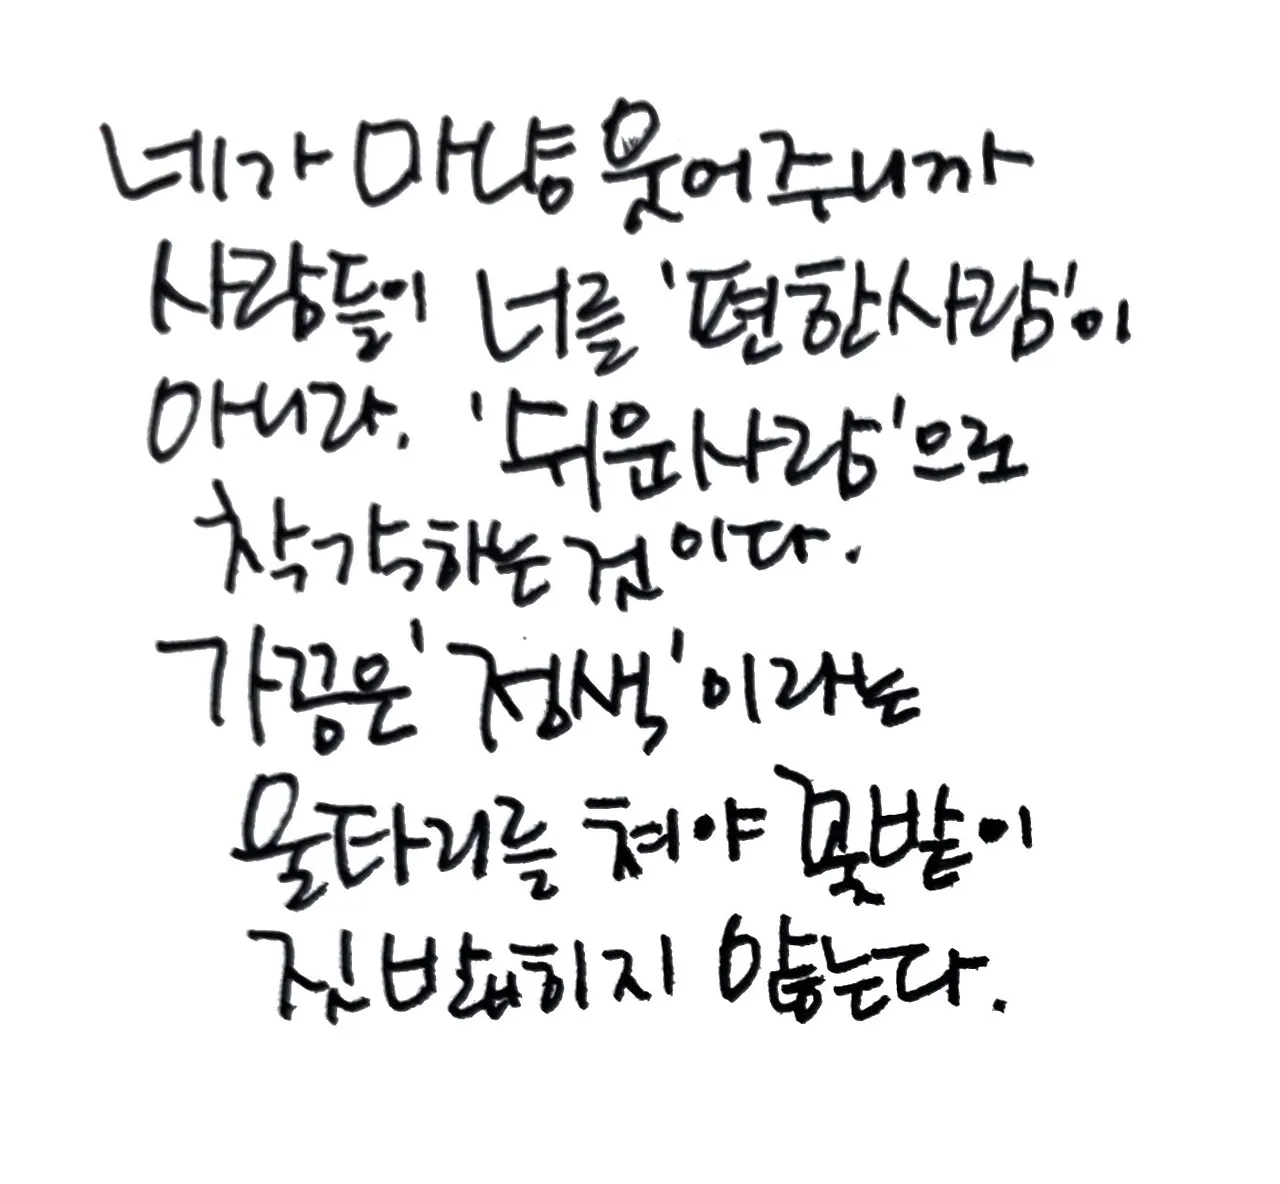 네가 마냥 웃어주니까
사람들이 너를 '편한사람'이
아니라. '쉬운사람'으로
착각하는 것이다.
가끔은 '정색'이라는
울타리를 쳐야 꽃밭이
짓밟히지 않는다.